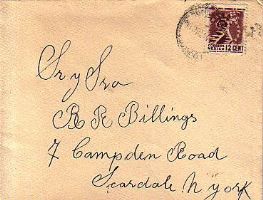 12 CEN
Sr y Sra
B R Billings
7 Campden Road
Scardale N York